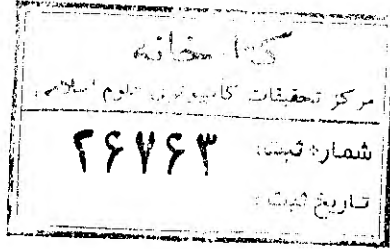 کتابخانه
مرکز تحقیقات کامپیوتری علوم اسلامی
شماره ثبت: ۲۶۷۶۳
تاریخ ثبت: